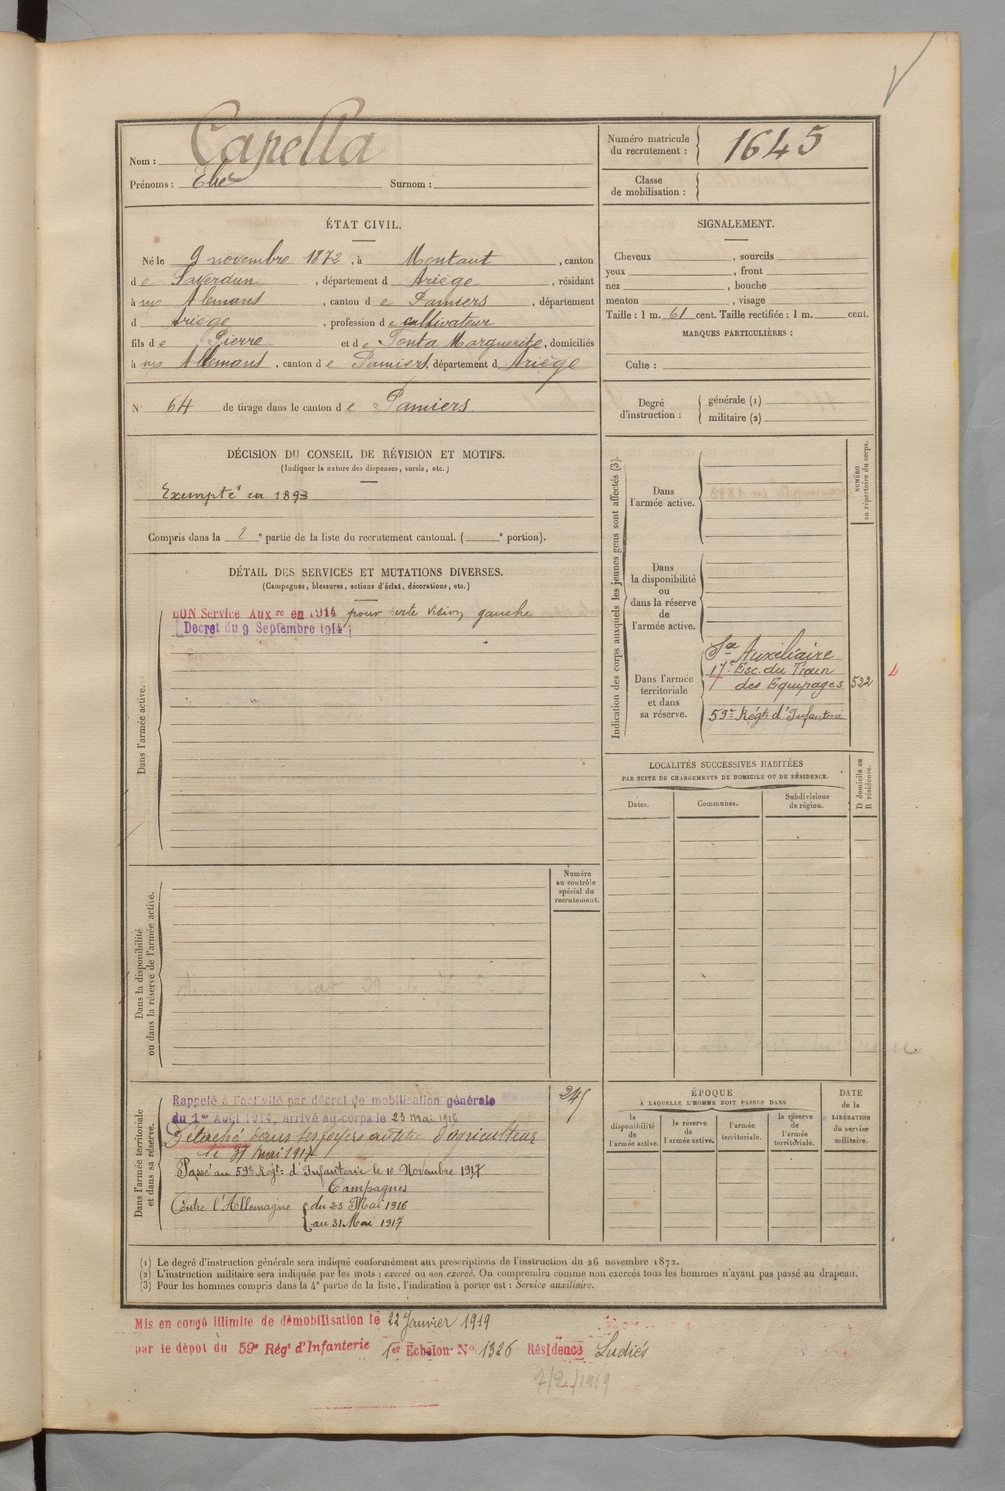 Nom : Capella
Prénoms : Elie Surnom :
Numéro matricule du recrutement : 1645
Classe de mobilisation :
ÉTAT CIVIL.
Né le 9 novembre 1872, à Montaut, canton
de Saverdun, département d Ariège, résidant
à Allemans, canton de Pamiers, département
d Ariège, profession de cultivateur
fils de Pierre et de Tonta Marguerite, domiciliés
à Allemans, canton de Pamiers, département d Ariège
N° 64 de tirage dans le canton de Pamiers
SIGNALEMENT.
Cheveux , sourcils
yeux , front
nez , bouche
menton , visage
Taille : 1 m. 61 cent. Taille rectifiée : 1 m. cent.
MARQUES PARTICULIÈRES :
Culte :
Degré d'instruction : générale (1)
militaire (2)
DÉCISION DU CONSEIL DE RÉVISION ET MOTIFS.
(Indiquer la nature des dispenses, sursis, etc.)
Exempté en 1893
Compris dans la 2 e partie de la liste du recrutement cantonal. ( e portion).
DÉTAIL DES SERVICES ET MUTATIONS DIVERSES.
(Campagnes, blessures, actions d'éclat, décorations, etc.)
Dans l'armée active.
BON Service Aux re en 1914 pour perte vision gauche
Décret du 9 Septembre 1914
Dans la disponibilité
ou dans la réserve de l'armée active.
Numéro
au contrôle
spécial du
recrutement.
Dans l'armée territoriale
et dans sa réserve.
Rappelé à l'activité par décret de mobilisation générale
du 1er Août 1914, arrivé au corps le 23 Mai 1916
245
Détaché dans ses foyers au titre d'agriculteur
le 31 mai 1917
Passé au 59e Régt d'Infanterie le 10 Novembre 1917
Campagnes
Contre l'Allemagne du 23 Mai 1916
au 31 Mai 1917
Indication des corps auxquels les jeunes gens sont affectés (3).
NUMÉRO
au répertoire du corps.
Dans
l'armée active.
Dans
la disponibilité
ou
dans la réserve
de
l'armée active.
Dans l'armée
territoriale
et dans
sa réserve.
Sce Auxiliaire
17e Esc. du Train
des Equipages 532
59e Régt d'Infanterie
LOCALITÉS SUCCESSIVES HABITÉES
PAR SUITE DE CHANGEMENTS DE DOMICILE OU DE RÉSIDENCE.
Dates. Communes. Subdivisions de région.
D domicile ou
R résidence.
ÉPOQUE
À LAQUELLE L'HOMME DOIT PASSER DANS
la disponibilité de l'armée active.
la réserve de l'armée active.
l'armée territoriale.
la réserve de l'armée territoriale.
DATE
de la
LIBÉRATION
du service
militaire.
(1) Le degré d'instruction générale sera indiqué conformément aux prescriptions de l'instruction du 26 novembre 1872.
(2) L'instruction militaire sera indiquée par les mots : exercé ou non exercé. On comprendra comme non exercés tous les hommes n'ayant pas passé au drapeau.
(3) Pour les hommes compris dans la 4e partie de la liste, l'indication à porter est : Service auxiliaire.
Mis en congé illimité de démobilisation le 22 Janvier 1919
par le dépôt du 59e Régt d'Infanterie 1er Echelon N° 1326 Résidence Ludiès
7/2/1919